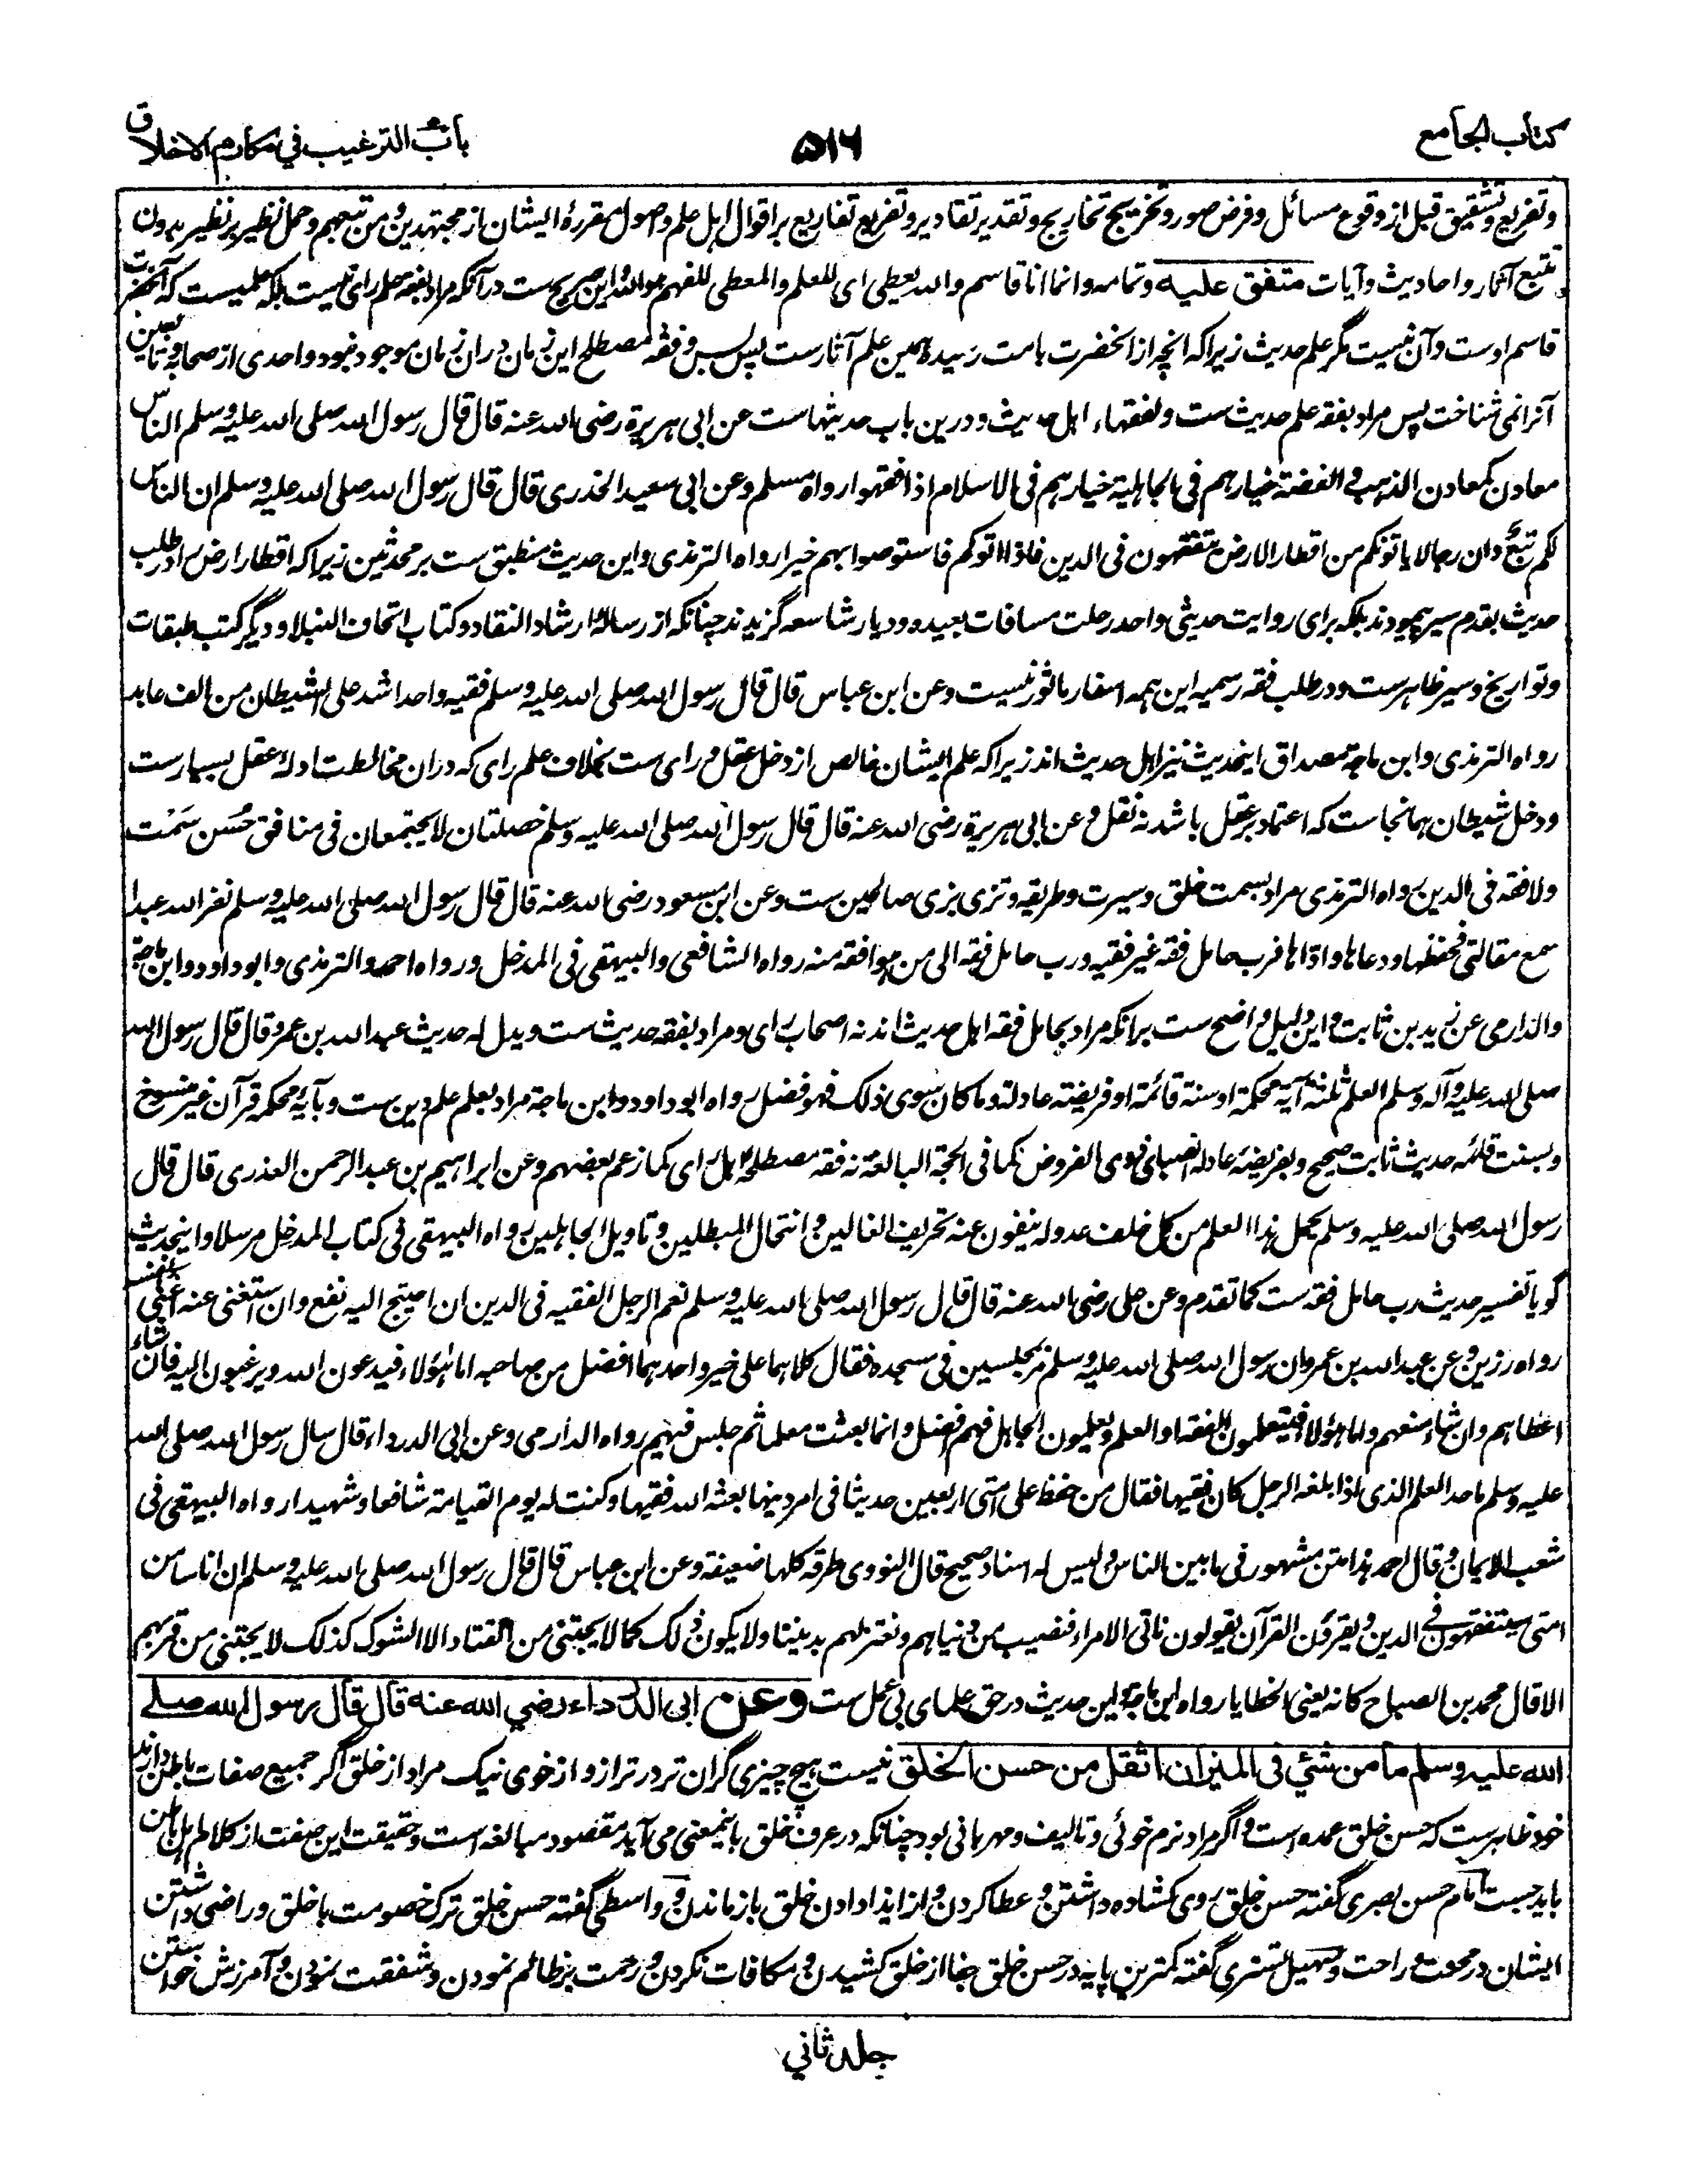 كتاب الجامع
۵۱۶
باب الترغيب في مكارم الاخلاق
وتفريع وتشقيق قبل از وقوع مسائل وفرض صور وتخريج تخاريج وتقدير تقادير وتفريع تفاريع بر اقوال اہل علم واصول مقررۂ ایشان از مجتہدین ومن تبعهم وحمل نظیر بر نظیر بدون
تتبع آثار واحادیث وآیات متفق عليه وتمامه وانما انا قاسم والله يعطی ای للعلم والمعطی للفهم هو الله این صریح ست در آنکه مراد بفقه علم رای نیست بلکه علمیست که آنحضرت
قاسم اوست وآن نیست مگر علم حدیث زیرا که آنچه از آنحضرت بامت رسیده همین علم آثارست پس وفقه مصطلح این زمان دران زمان موجود نبود واحدی از صحابه وتابعین
آنرا نمی شناخت پس مراد بفقه علم حدیث ست وبفقهاء اہل حدیث ودرین باب حدیثهاست عن ابی هریرة رضی الله عنه قال قال رسول الله صلی الله علیه وسلم الناس
معادن کمعادن الذهب والفضة خیارهم فی الجاهلیة خیارهم فی الاسلام اذا فقهوا رواه مسلم وعن ابی سعید الخدری قال قال رسول الله صلی الله علیه وسلم ان الناس
لکم تبع وان رجالا یاتونکم من اقطار الارض یتفقهون فی الدین فاذا اتوکم فاستوصوا بهم خیرا رواه الترمذی واین حدیث منطبق ست بر محدثین زیرا که اقطار ارض را در طلب
حدیث بقدم سیر پیمودند بلکه برای روایت حدیثی واحد رحلت مسافات بعیده ودیار شاسعه گزیدند چنانکه از رسالۂ ارشاد النقاد وکتاب اتحاف النبلا ودیگر کتب طبقات
وتواریخ وسیر ظاهرست ودر طلب فقه رسمیه این همه اسفار ماثور نیست وعن ابن عباس قال قال رسول الله صلی الله علیه وسلم فقیه واحد اشد علی الشیطان من الف عابد
رواه الترمذی وابن ماجة مصداق اینحدیث نیز اہل حدیث اند زیرا که علم ایشان خالص از دخل عقل ورای ست بخلاف علم رای که دران مخالطت ادلۂ عقل بسیارست
ودخل شیطان همانجاست که اعتماد بر عقل باشد نه نقل وعن ابی هریرة رضی الله عنه قال قال رسول الله صلی الله علیه وسلم خصلتان لا یجتمعان فی منافق حُسن سَمْت
ولا فقه فی الدین رواه الترمذی مراد بسمت خلق وسیرت وطریقه وتزی بزی صالحین ست وعن ابن مسعود رضی الله عنه قال قال رسول الله صلی الله علیه وسلم نضر الله عبدا
سمع مقالتی فحفظها ووعاها واداها فرب حامل فقه غیر فقیه ورب حامل فقه الی من هو افقه منه رواه الشافعی والبیهقی فی المدخل ورواه احمد والترمذی وابو داود وابن ماجة
والدارمی عن زید بن ثابت واین دلیل واضح ست برانکه مراد بحامل فقه اہل حدیث اند نه اصحاب رای ومراد بفقه حدیث ست ویدل له حدیث عبد الله بن عمرو قال قال رسول الله
صلی الله علیه وآله وسلم العلم ثلثة آیة محکمة او سنة قائمة او فریضة عادلة وما کان سوی ذلک فهو فضل رواه ابو داود وابن ماجة مراد بعلم علم دین ست وبآیۂ محکمه قرآن غیر منسوخ
وبسنت قائمه حدیث ثابت صحیح وبفریضۂ عادله انصبای ذوی الفروض کما فی الحجة البالغة نه فقه مصطلحۂ اہل رای کما زعم بعضهم وعن ابراهیم بن عبد الرحمن العذری قال قال
رسول الله صلی الله علیه وسلم یحمل هذا العلم من کل خلف عدوله ینفون عنه تحریف الغالین وانتحال المبطلین وتاویل الجاهلین رواه البیهقی فی کتاب المدخل مرسلا واینحدیث
گویا تفسیر حدیث رب حامل فقه ست کما تقدم وعن علی رضی الله عنه قال قال رسول الله صلی الله علیه وسلم نعم الرجل الفقیه فی الدین ان احتیج الیه نفع وان استغنی عنه اغنی نفسه
رواه رزین وعن عبد الله بن عمرو ان رسول الله صلی الله علیه وسلم مر بمجلسین فی مسجده فقال کلاهما علی خیر واحدهما افضل من صاحبه اما هؤلاء فیدعون الله ویرغبون الیه فان شاء
اعطاهم وان شاء منعهم واما هؤلاء فیتعلمون الفقه او العلم ویعلمون الجاهل فهم افضل وانما بعثت معلما ثم جلس فیهم رواه الدارمی وعن ابی الدرداء قال سال رسول الله صلی الله
علیه وسلم ما حد العلم الذی اذا بلغه الرجل کان فقیها فقال من حفظ علی امتی اربعین حدیثا فی امر دینها بعثه الله فقیها وکنت له یوم القیامة شافعا وشهیدا رواه البیهقی فی
شعب الایمان وقال احمد هذا متن مشهور فی ما بین الناس ولیس له اسناد صحیح قال النووی طرقه کلها ضعیفة وعن ابن عباس قال قال رسول الله صلی الله علیه وسلم ان اناسا من
امتی سیتفقهون فی الدین ویقرؤن القرآن یقولون ناتی الامراء فنصیب من دنیاهم ونعتزلهم بدیننا ولا یکون ذلک کما لا یجتنی من القتاد الا الشوک کذلک لا یجتنی من قربهم
الا قال محمد بن الصباح کانه یعنی الخطایا رواه ابن ماجة این حدیث در حق علمای بی عمل ست وعن ابی الدرداء رضي الله عنه قال قال رسول الله صلے
الله عليه وسلم ما من شئي في الميزان اثقل من حسن الخلق نیست هیچ چیزی گران تر در ترازو از خوی نیک مراد از خلق اگر جمیع صفات باطن دارند
خود ظاهرست که حسن خلق عمده است واگر مراد نرم خوئی وتالیف ومهربانی بود چنانکه در عرف خلق باینمعنی می آید مقصود مبالغه است وحقیقت این صفت از کلام اہل باطن
باید جست امام حسن بصری گفته حسن خلق روی کشاده داشتن وعطا کردن واز ایذا دادن خلق باز ماندن وواسطی گفته حسن خلق ترک خصومت با خلق وراضی داشتن
ایشان در محنت وراحت وسهیل تستری گفته کمترین پایه در حسن خلق جفا از خلق کشیدن ومکافات نکردن ورحمت بر ظالم نمودن وشفقت نمودن وآمرزش خواستن
جلد ثاني